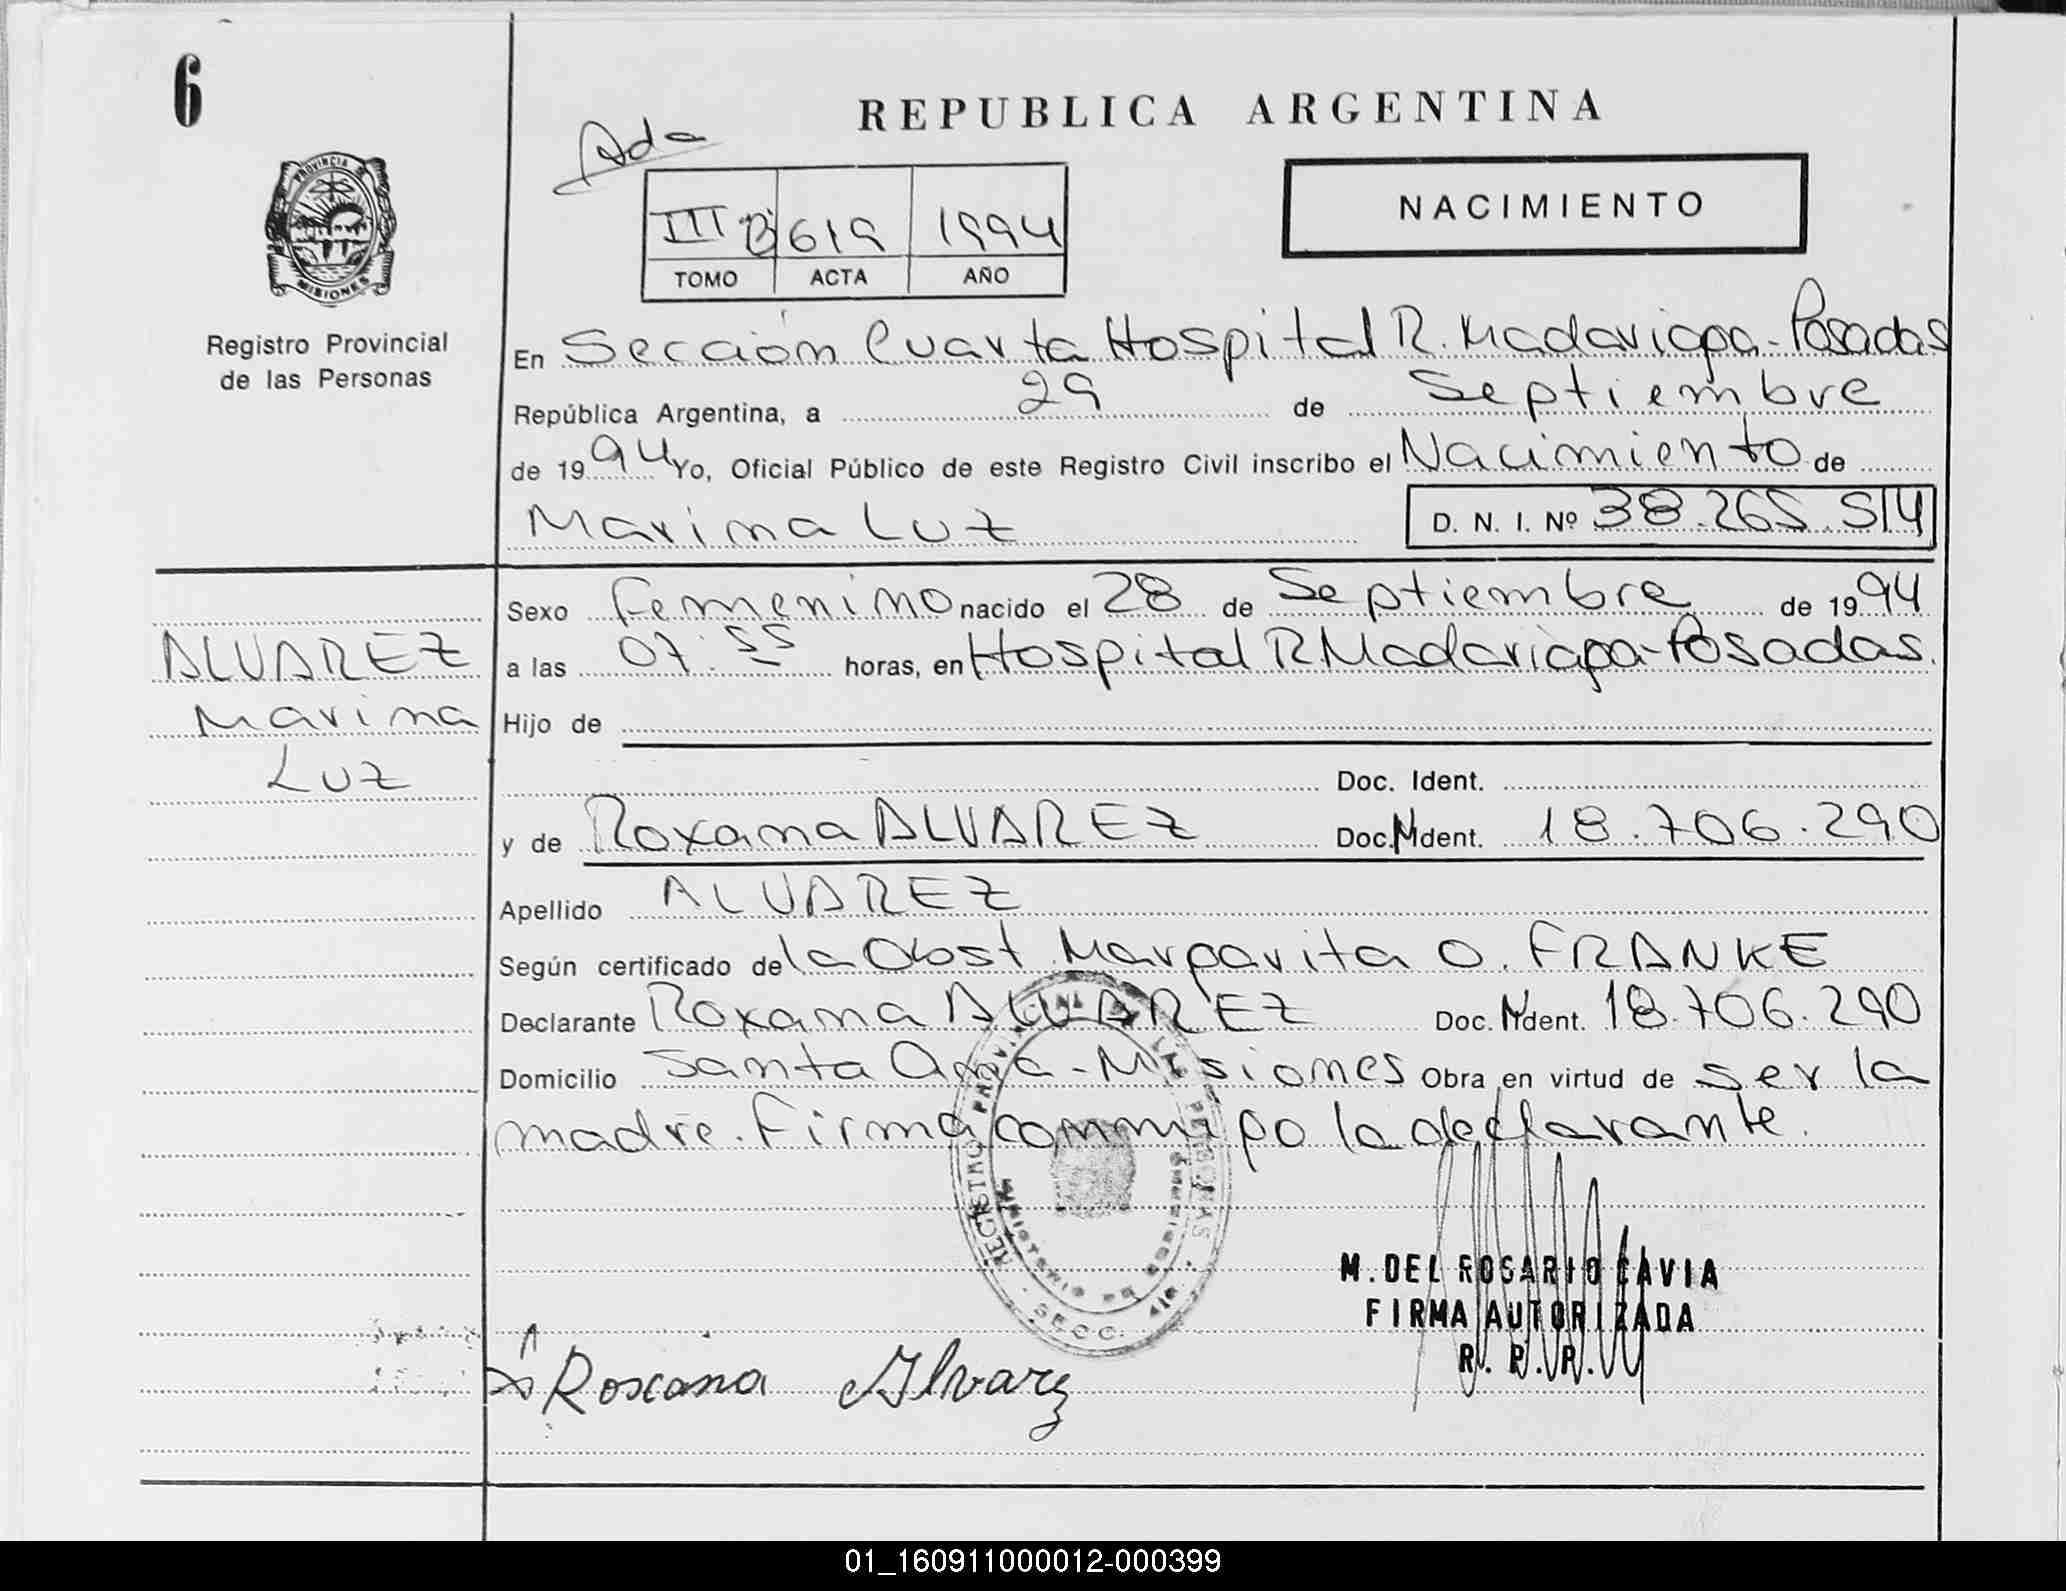 6
REPUBLICA ARGENTINA
Ada
III "B" 619 1994
TOMO ACTA AÑO
NACIMIENTO
PROVINCIA DE
MISIONES
Registro Provincial
de las Personas
En Sección Cuarta Hospital R. Madariaga-Posadas
República Argentina, a 29 de Septiembre
de 1994 Yo, Oficial Público de este Registro Civil inscribo el Nacimiento de
Marina Luz D. N. I. Nº 38.265.514
ALVAREZ
Marina
Luz
Sexo Femenino nacido el 28 de Septiembre de 1994
a las 07:55 horas, en Hospital R Madariaga-Posadas.
Hijo de
Doc. Ident.
y de Roxana ALVAREZ Doc. Ident. 18.706.290
Apellido ALVAREZ
Según certificado de la Obst. Margarita O. FRANKE
Declarante Roxana ALVAREZ Doc. Ident. 18.706.290
Domicilio Santa Ana-Misiones Obra en virtud de ser la
madre. Firma conmigo la declarante.
REGISTRO PROVINCIAL DE LAS PERSONAS
MINISTERIO DE GOBIERNO
SECC. 4ta
M. DEL ROSARIO CAVIA
FIRMA AUTORIZADA
R. P. P.
Roxana Alvarez
01_160911000012-000399